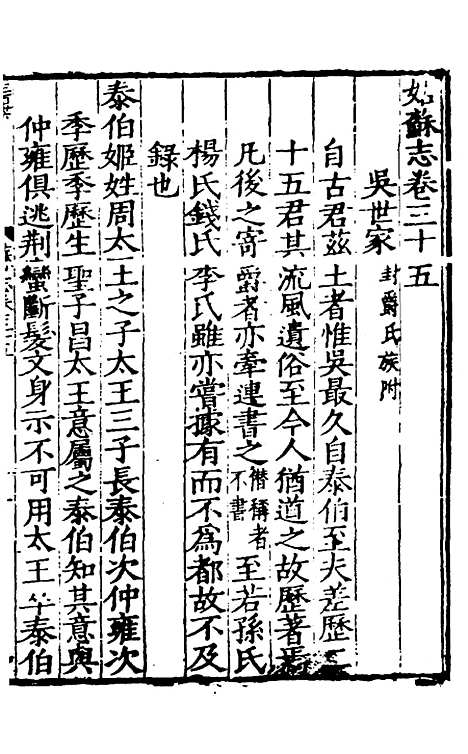 姑蘇志卷三十五
吳世家封爵氏族附
自古君茲土者惟吳最久自泰伯至夫差歷二
十五君其流風遺俗至今人猶道之故歷著焉
凡後之寄爵者亦牽連書之僭稱者不書至若孫氏
楊氏錢氏李氏雖亦嘗據有而不爲都故不及
錄也
泰伯姬姓周太王之子太王三子長泰伯次仲雍次
季歷季歷生聖子昌太王意屬之泰伯知其意與
仲雍俱逃荆蠻斷髮文身示不可用太王卒泰伯